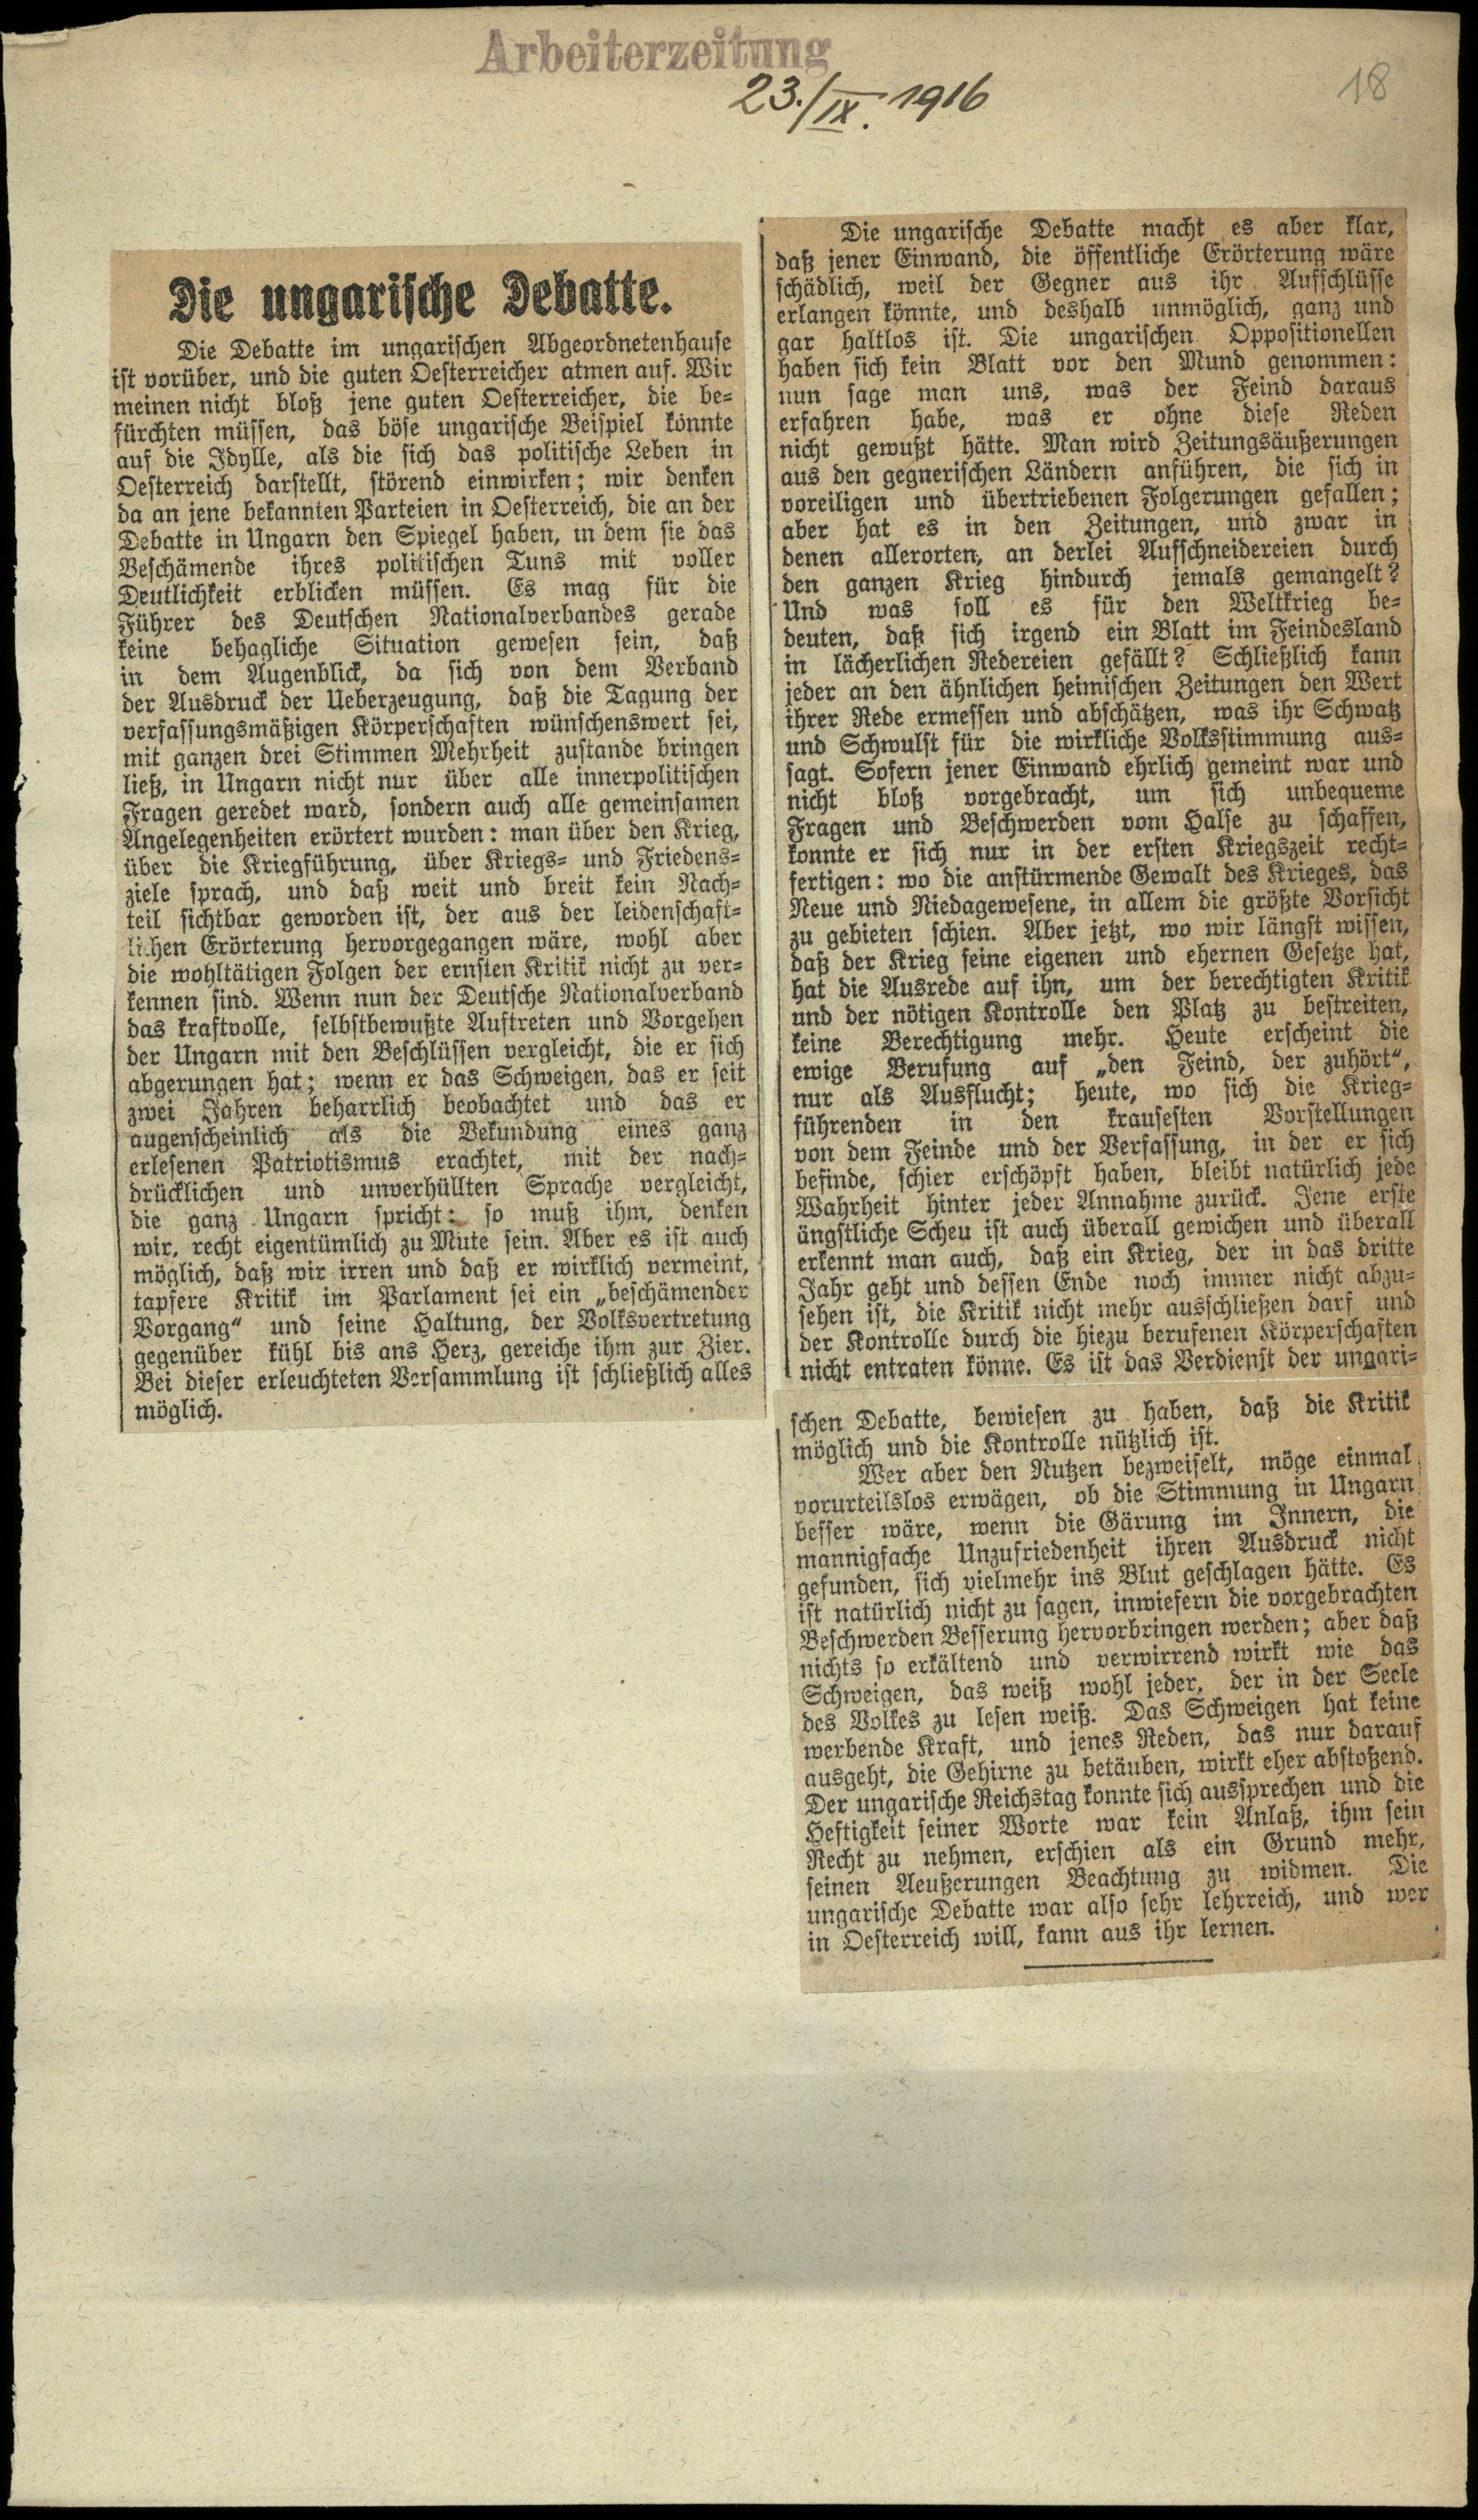 Arbeiterzeitung
23./IX. 1916
18
Die ungarische Debatte.
Die Debatte im ungarischen Abgeordnetenhause
ist vorüber, und die guten Oesterreicher atmen auf. Wir
meinen nicht bloß jene guten Oesterreicher, die be-
fürchten müssen, das böse ungarische Beispiel könnte
auf die Idylle, als die sich das politische Leben in
Oesterreich darstellt, störend einwirken; wir denken
da an jene bekannten Parteien in Oesterreich, die an der
Debatte in Ungarn den Spiegel haben, in dem sie das
Beschämende ihres politischen Tuns mit voller
Deutlichkeit erblicken müssen. Es mag für die
Führer des Deutschen Nationalverbandes gerade
keine behagliche Situation gewesen sein, daß
in dem Augenblick, da sich von dem Verband
der Ausdruck der Ueberzeugung, daß die Tagung der
verfassungsmäßigen Körperschaften wünschenswert sei,
mit ganzen drei Stimmen Mehrheit zustande bringen
ließ, in Ungarn nicht nur über alle innerpolitischen
Fragen geredet ward, sondern auch alle gemeinsamen
Angelegenheiten erörtert wurden: man über den Krieg,
über die Kriegführung, über Kriegs- und Friedens-
ziele sprach, und daß weit und breit kein Nach-
teil sichtbar geworden ist, der aus der leidenschaft-
lichen Erörterung hervorgegangen wäre, wohl aber
die wohltätigen Folgen der ernsten Kritik nicht zu ver-
kennen sind. Wenn nun der Deutsche Nationalverband
das kraftvolle, selbstbewußte Auftreten und Vorgehen
der Ungarn mit den Beschlüssen vergleicht, die er sich
abgerungen hat; wenn er das Schweigen, das er seit
zwei Jahren beharrlich beobachtet und das er
augenscheinlich als die Bekundung eines ganz
erlesenen Patriotismus erachtet, mit der nach-
drücklichen und unverhüllten Sprache vergleicht,
die ganz Ungarn spricht: so muß ihm, denken
wir, recht eigentümlich zu Mute sein. Aber es ist auch
möglich, daß wir irren und daß er wirklich vermeint,
tapfere Kritik im Parlament sei ein „beschämender
Vorgang“ und seine Haltung, der Volksvertretung
gegenüber kühl bis ans Herz, gereiche ihm zur Zier.
Bei dieser erleuchteten Versammlung ist schließlich alles
möglich.
Die ungarische Debatte macht es aber klar,
daß jener Einwand, die öffentliche Erörterung wäre
schädlich, weil der Gegner aus ihr Aufschlüsse
erlangen könnte, und deshalb unmöglich, ganz und
gar haltlos ist. Die ungarischen Oppositionellen
haben sich kein Blatt vor den Mund genommen:
nun sage man uns, was der Feind daraus
erfahren habe, was er ohne diese Reden
nicht gewußt hätte. Man wird Zeitungsäußerungen
aus den gegnerischen Ländern anführen, die sich in
voreiligen und übertriebenen Folgerungen gefallen;
aber hat es in den Zeitungen, und zwar in
denen allerorten, an derlei Aufschneidereien durch
den ganzen Krieg hindurch jemals gemangelt?
Und was soll es für den Weltkrieg be-
deuten, daß sich irgend ein Blatt im Feindesland
in lächerlichen Redereien gefällt? Schließlich kann
jeder an den ähnlichen heimischen Zeitungen den Wert
ihrer Rede ermessen und abschätzen, was ihr Schwatz
und Schwulst für die wirkliche Volksstimmung aus-
sagt. Sofern jener Einwand ehrlich gemeint war und
nicht bloß vorgebracht, um sich unbequeme
Fragen und Beschwerden vom Halse zu schaffen,
konnte er sich nur in der ersten Kriegszeit recht-
fertigen: wo die anstürmende Gewalt des Krieges, das
Neue und Niedagewesene, in allem die größte Vorsicht
zu gebieten schien. Aber jetzt, wo wir längst wissen,
daß der Krieg seine eigenen und ehernen Gesetze hat,
hat die Ausrede auf ihn, um der berechtigten Kritik
und der nötigen Kontrolle den Platz zu bestreiten,
keine Berechtigung mehr. Heute erscheint die
ewige Berufung auf „den Feind, der zuhört“,
nur als Ausflucht; heute, wo sich die Krieg-
führenden in den krausesten Vorstellungen
von dem Feinde und der Verfassung, in der er sich
befinde, schier erschöpft haben, bleibt natürlich jede
Wahrheit hinter jeder Annahme zurück. Jene erste
ängstliche Scheu ist auch überall gewichen und überall
erkennt man auch, daß ein Krieg, der in das dritte
Jahr geht und dessen Ende noch immer nicht abzu-
sehen ist, die Kritik nicht mehr ausschließen darf und
der Kontrolle durch die hiezu berufenen Körperschaften
nicht entraten könne. Es ist das Verdienst der ungari-
schen Debatte, bewiesen zu haben, daß die Kritik
möglich und die Kontrolle nützlich ist.
Wer aber den Nutzen bezweifelt, möge einmal
vorurteilslos erwägen, ob die Stimmung in Ungarn
besser wäre, wenn die Gärung im Innern, die
mannigfache Unzufriedenheit ihren Ausdruck nicht
gefunden, sich vielmehr ins Blut geschlagen hätte. Es
ist natürlich nicht zu sagen, inwiefern die vorgebrachten
Beschwerden Besserung hervorbringen werden; aber daß
nichts so erkältend und verwirrend wirkt wie das
Schweigen, das weiß wohl jeder, der in der Seele
des Volkes zu lesen weiß. Das Schweigen hat keine
werbende Kraft, und jenes Reden, das nur darauf
ausgeht, die Gehirne zu betäuben, wirkt eher abstoßend.
Der ungarische Reichstag konnte sich aussprechen und die
Heftigkeit seiner Worte war kein Anlaß, ihm sein
Recht zu nehmen, erschien als ein Grund mehr,
seinen Aeußerungen Beachtung zu widmen. Die
ungarische Debatte war also sehr lehrreich, und wer
in Oesterreich will, kann aus ihr lernen.